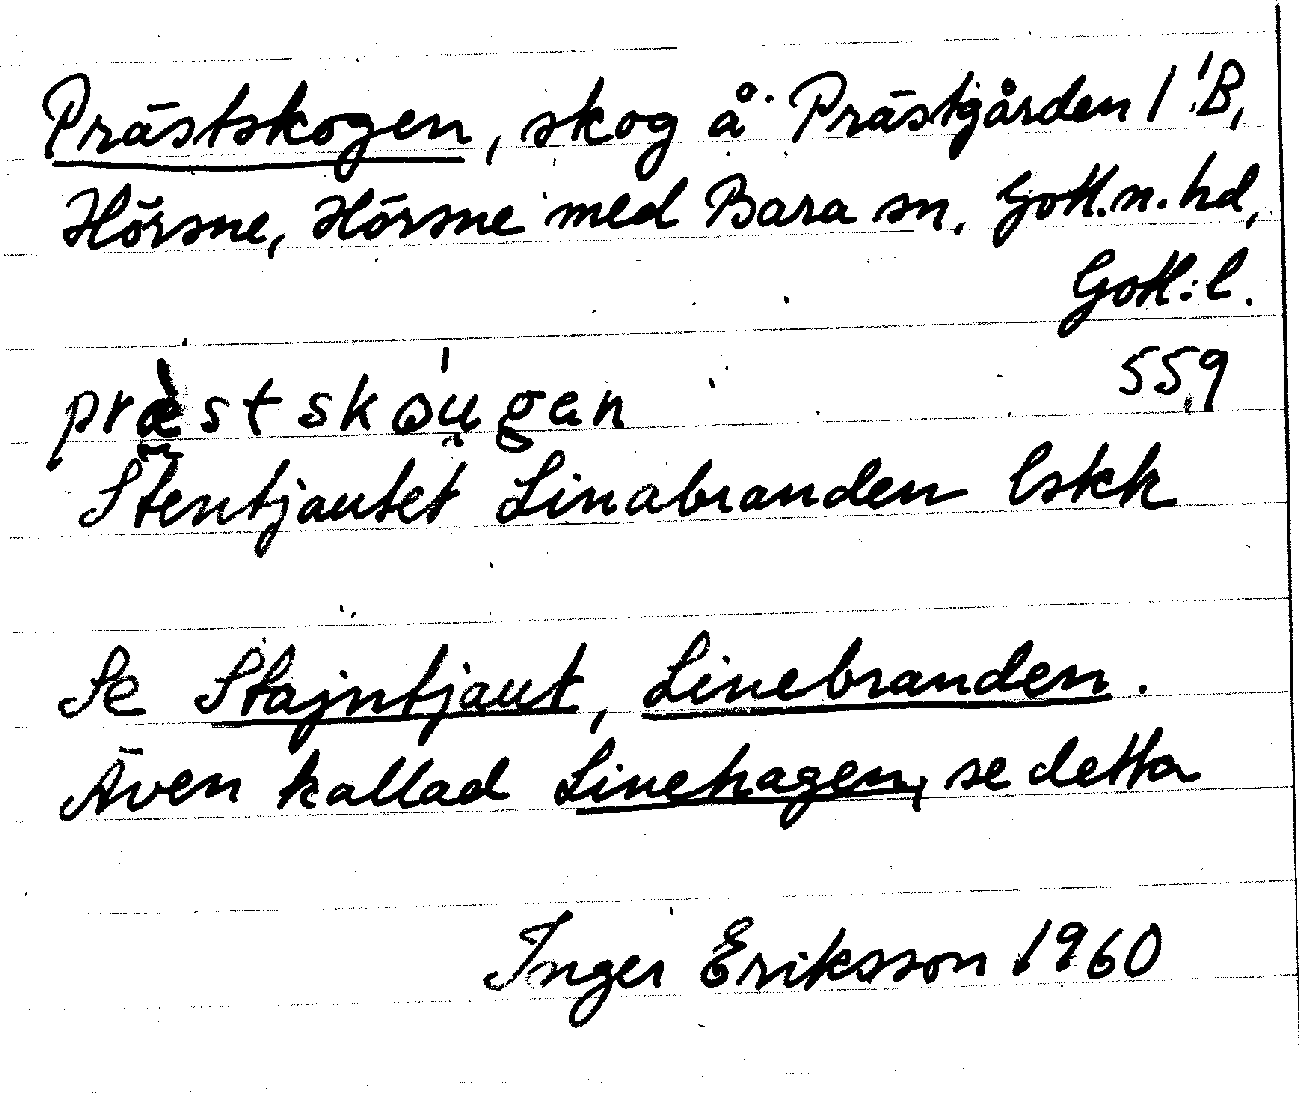 Prästskogen, skog å Prästgården 1 B,
Hörsne, Hörsne med Bara sn, Gotl. n. hd,
Gotl:l.
præ̀stskóu̯gan 559
Stentjautet Linabranden Eskk
Se Stajntjaut, Linebranden.
Även kallad Linehagen, se detta
Inger Eriksson 1960